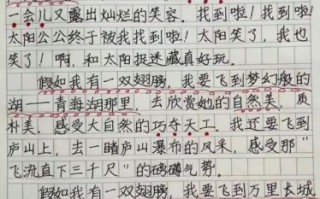 一会儿又露出灿烂的笑容。我找到啦！找到啦！
太阳公公终于被我找到啦！太阳笑了，我也
笑了！啊，和太阳捉迷藏真好玩。
假如我有一双翅膀，我要飞到梦幻般的
湖——青海湖那里，去欣赏她的自然美，质
朴美，感受大自然的巧夺天工。我还要飞到
庐山上，去一睹庐山瀑布的风采，感受那“
飞流直下三千尺”的磅礴气势。
假如我有一双翅膀，我要飞到万里长城，